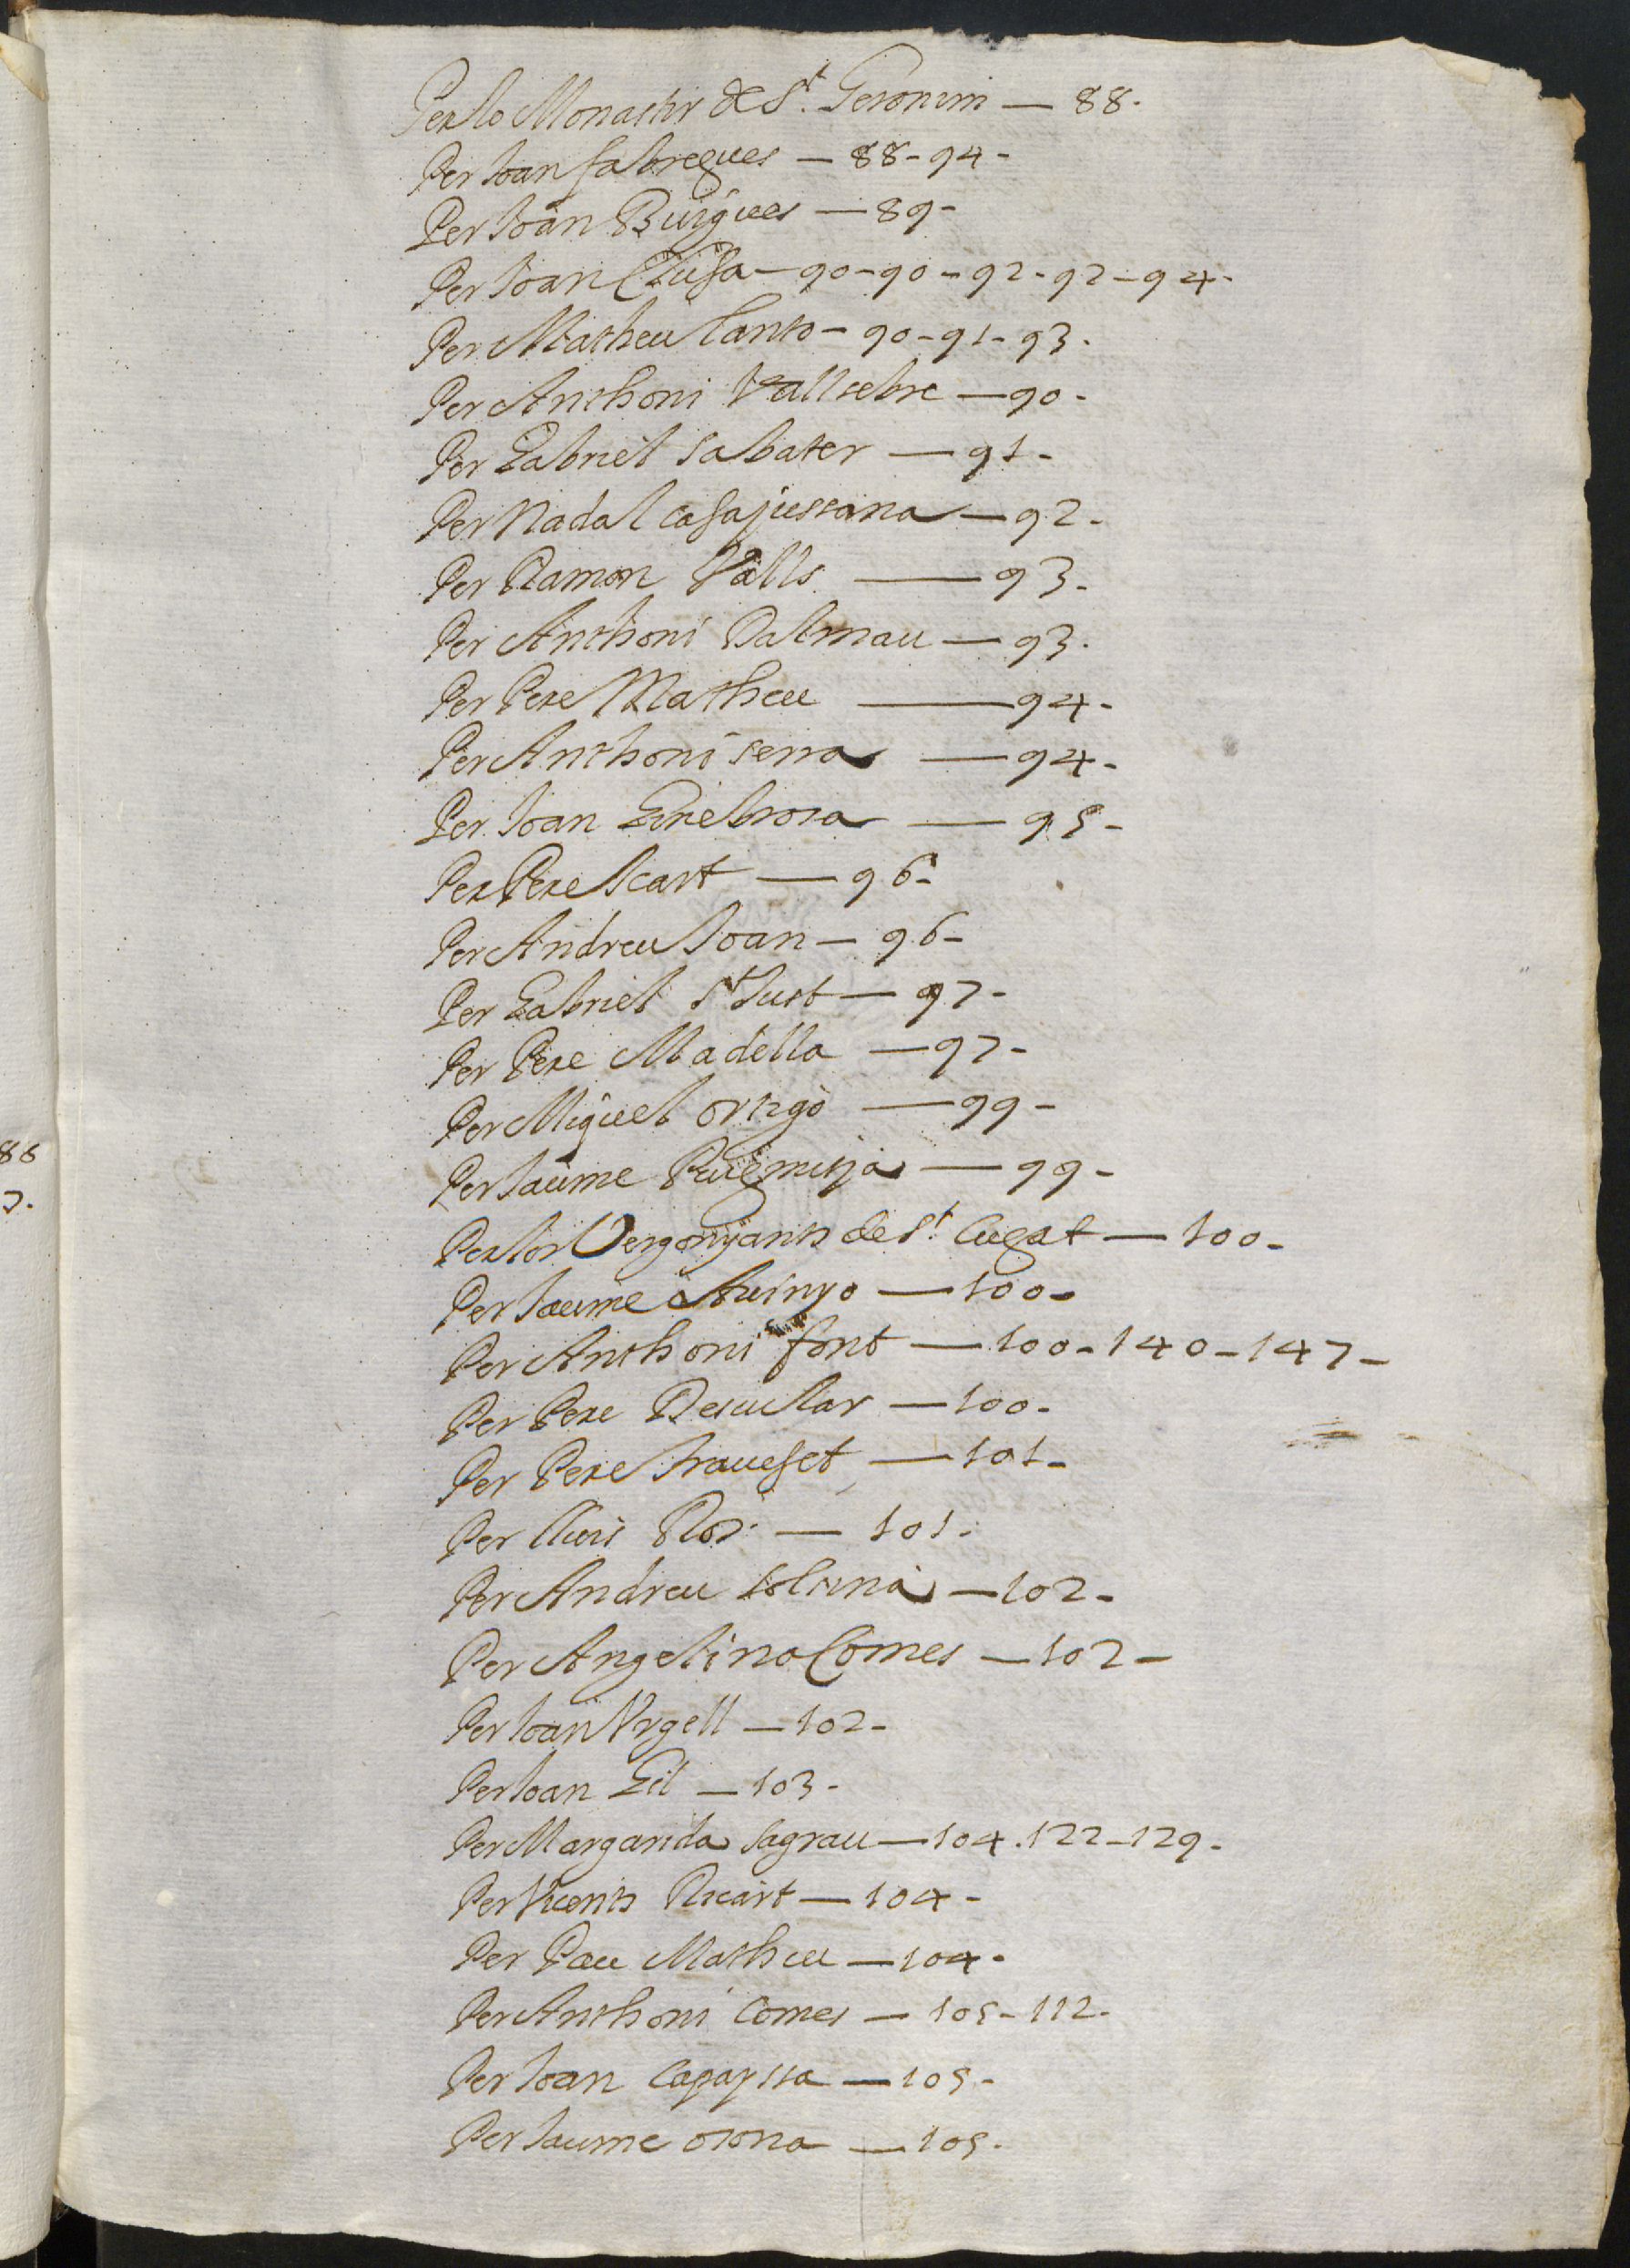 Per lo Monastir de St. Geronim — 88.
Per Joan fabregues — 88-94-
Per Joan Buigues — 89-
Per Joan Clusa — 90-90-92-92-94-
Per Matheu Canto - 90-91-93.
Per Anthoni Vallsebre — 90-
Per Gabriel Sabater — 91-
Per Nadal casajussana — 92-
Per Ramon Valls — 93-
Per Anthoni Dalmau — 93.
Per Pere Matheu — 94-
Per Anthoni serra — 94-
Per Joan Ginebrosa — 95-
Per Pere Icart — 96-
Per Andreu Joan — 96-
Per Gabriel St Just — 97-
Per Pere Madella — 97-
Per Miquel ortigo — 99-
Per Jaume Puigmitja — 99-
Per los Vergonyants de St. Cugat — 100-
Per Jaume Auinyo — 100-
Per Anthoni font — 100-140-147-
Per Pere Descullar — 100-
Per Pere trauesset — 101-
Per lluis Ros. — 101.
Per Andreu soltina — 102-
Per Angelina Comes — 102-
Per Joan Vrgell — 102-
Per Joan Gil — 103-
Per Margarida Sagrau — 104.122-129-
Per Vicents Ricart — 104-
Per Pau Matheu — 104-
Per Anthoni Comes — 105-112-
Per Joan Capapssa — 105-
Per Jaume osona — 105.
88
7.